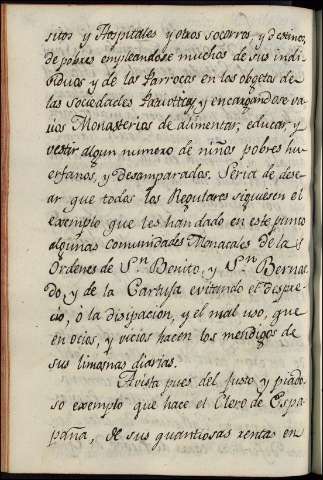 sitos y Hospitales y otros socorros, y destinos
de pobres empleandose muchos de sus indi-
biduos y de los Parrocos en los objetos de
las Sociedades Patrioticas y encargandose va-
rios Monasterios de alimentar, educar y
vestir algun numero de niños pobres hu-
erfanos, y desamparados. Seria de dese-
ar que todos los Regulares siguiesen el
exemplo que les han dado en este punto
algunas comunidades Monacales de las
Ordenes de Sn. Benito, y Sn. Bernar
do y de la Cartuja evitando el despre-
cio, o la disipacion, y el mal uso, que
en ocios, y vicios hacen los mendigos de
sus limosnas diarias.
Avista pues del justo y piado-
so exemplo que hace el Clero de Espa-
paña, de sus quantiosas rentas en